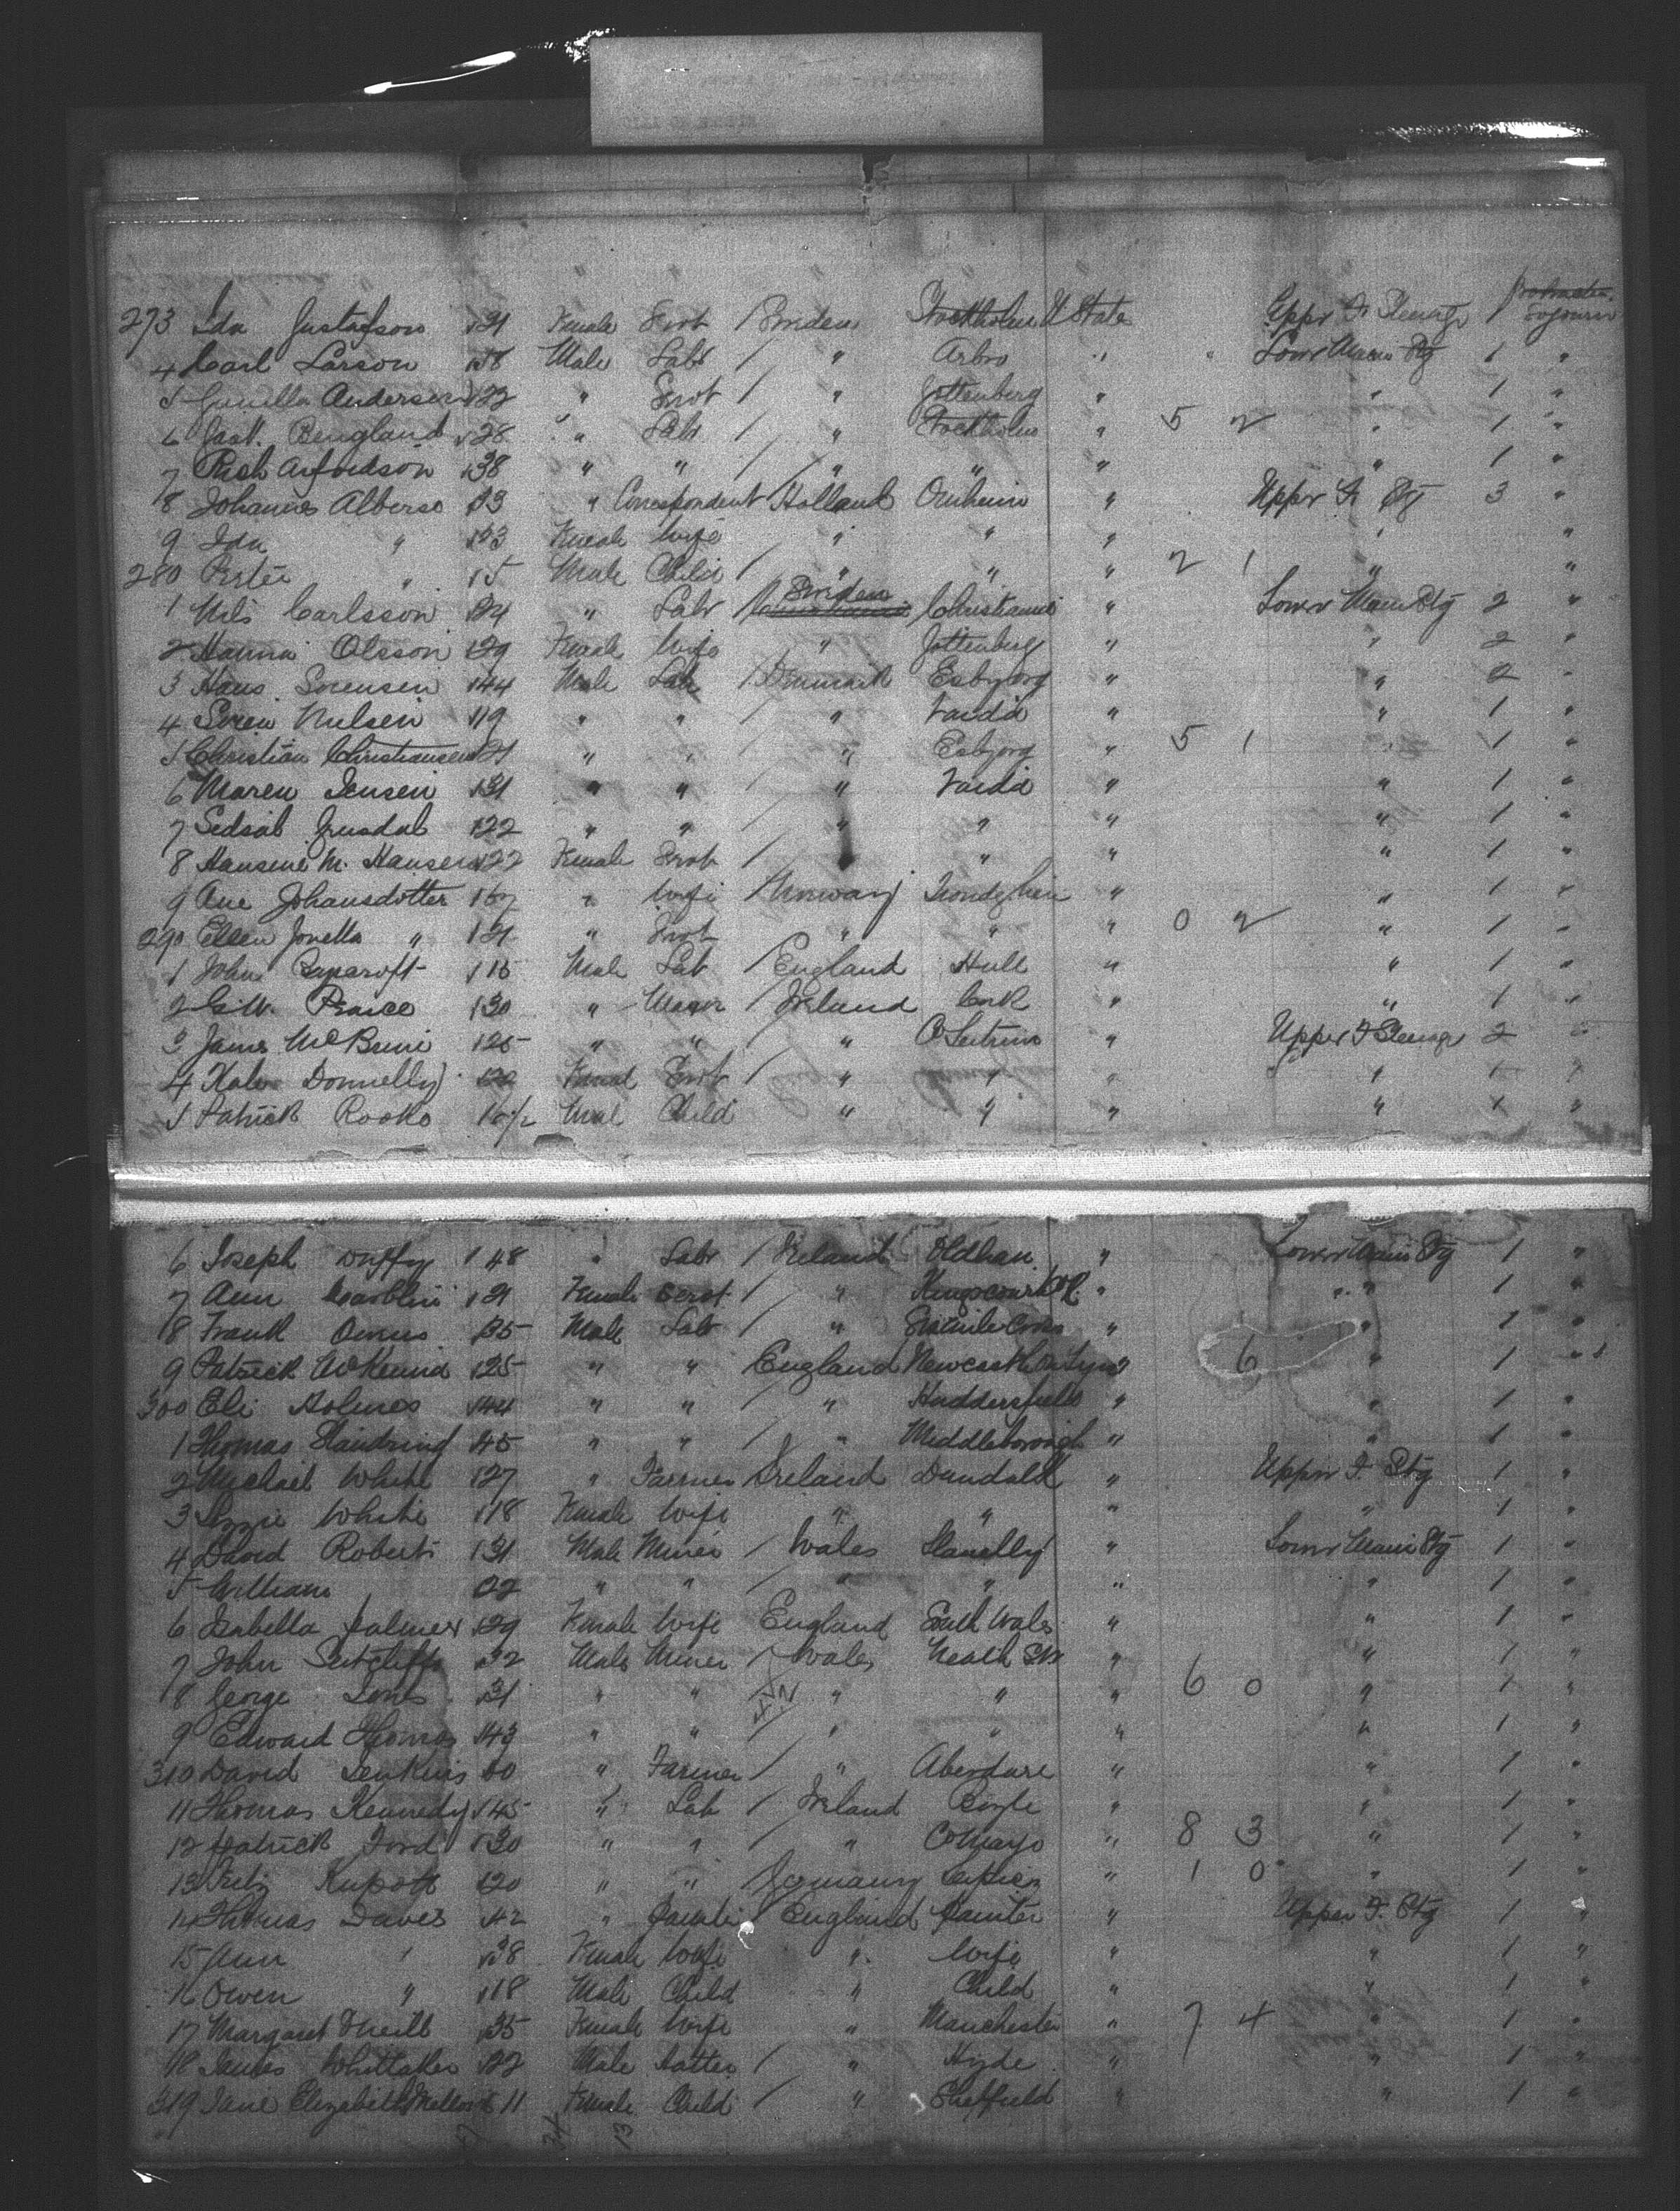 273 Ida Gustafson 21 Female Servt Sweden Stockholm U States Upper F Steerage 1 Protracted Sojourn
4 Carl Larson 18 Male Labr " Arbro " " Lower Main Stg 1 "
5 Gunilla Anderson 22 " Servt " Gottenberg " " 1 "
6 Gust. Bengland 28 " Labr " Stockholm " 5 2 " 1 "
7 Rich Arfvedson 38 " " " " " " 1 "
8 Johannes Alberse 33 " Correspondent Holland " Upper F. Stg 3 "
9 Ida " 23 Female Wife " " " " "
280 " 5 Male Child " " " 2 1 " "
1 Nils Carlsson 24 " Labr Sweden Christiania " Lower Main Stg 2 "
2 Hanna Olsson 29 Female Wife " Gottenberg " " 2 "
3 Hans Sorensen 44 Male Lab Denmark Esbjerg " " 2 "
4 Soren Nielsen 19 " " " " " 1 "
5 Christian Christiansen 21 " " " Esbjerg " 5 1 " 1 "
6 Maren Jensen 31 " " " " " 1 "
7 22 " " " " " " 1 "
8 Hansine M. Hansen 22 Female Servt " " " " 1 "
9 Ane Johansdotter 67 " Wife Norway Trondjhem " " 1 "
290 Ellen Jonetta " 21 " Servt " " " 0 2 " 1 "
1 John Bancroft 18 Male Lab England Hull " " 1 "
2 G.W. Pearce 30 " Mason Ireland Cork " " 1 "
3 James 25 " " " Co Leitrim " Upper F Steerage 2 "
4 Kate Donnelly 20 Femal Servt " " " " 1 "
5 Patrick Male Child " " " " 1 "
6 Joseph Duffy 48 " Labr Ireland Oldham " Lower Main Stg 1 "
7 Ann 21 Female Servt " Kingscourt " " " 1 "
8 Frank Owens 35 Male Labr " Sixmile Cross " " 1 "
9 Patrick McKenna 25 " " England Newcastle on Tyne " 6 " 1 "
300 Eli Holmes 44 " " " Huddersfield " " 1 "
1 Thomas 45 " " " Middleborough " " 1 "
2 Michael White 27 " Farmer Ireland Dundalk " Upper F. Stg 1 "
3 Lizzie White 18 Female Wife " " " " 1 "
4 David Roberts 31 Male Miner Wales Llanelly " Lower Main Stg 1 "
5 William 22 " " " " " " 1 "
6 Isabella Palmer 29 Female Wife England South Wales " " 1 "
7 John Sutcliffe 32 Male Miner Wales Neath " " 1 "
8 George Jones 31 " " " " " 6 0 " 1 "
9 Edward Thomas 43 " " " " " " 1 "
310 David Jenkins 60 " Farmer " Aberdare " " 1 "
11 Thomas Kennedy 45 " Lab Ireland Boyle " " 1 "
12 Patrick Ford 30 " " " Co Mayo " 8 3 " 1 "
13 Fritz 20 " " Germany " 1 0 " 1 "
14 Thomas Davies 42 " Painter England Painter " Upper F. Stg 1 "
15 Ann " 38 Female Wife " Wife " " 1 "
16 Owen " 18 Male Child " Child " " 1 "
17 Margaret Oneill 35 Female Wife " Manchester " 7 4 " 1 "
18 James Whittaker 22 Male hatter " Hyde " " 1 "
319 Jane Elizabeth 11 Female Child " Sheffield " " 1 "
34 13